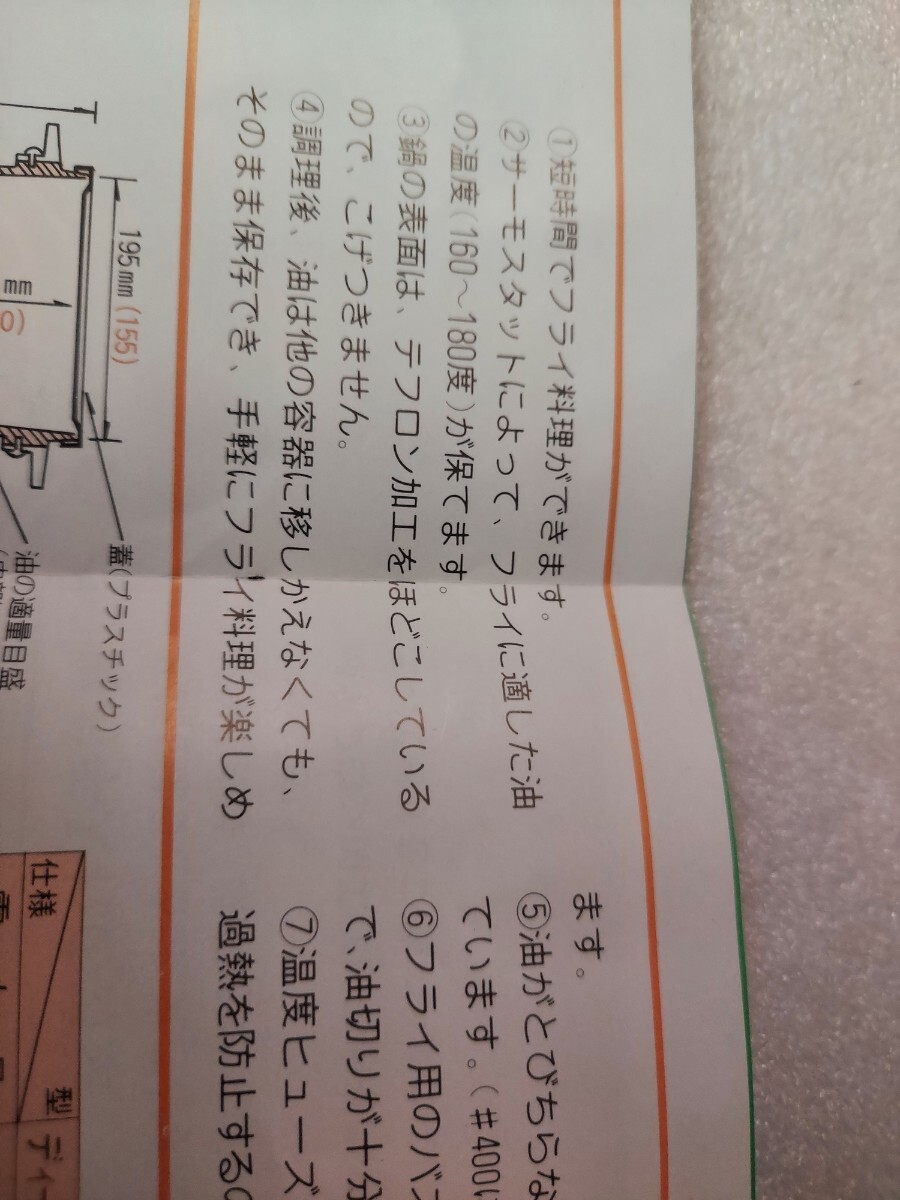 ①短時間でフライ料理ができます。
②サーモスタットによって、フライに適した油
の温度(160～180度)が保てます。
③鍋の表面は、テフロン加工をほどこしている
ので、こげつきません。
④調理後、油は他の容器に移しかえなくても、
そのまま保存でき、手軽にフライ料理が楽しめ
ます。
⑤油がとびちらな
ています。(♯400に
⑥フライ用のバ
で、油切りが十分
⑦温度ヒューズ
過熱を防止する
195mm(155)
蓋(プラスチック)
油の適量目盛
仕様
型
ディ